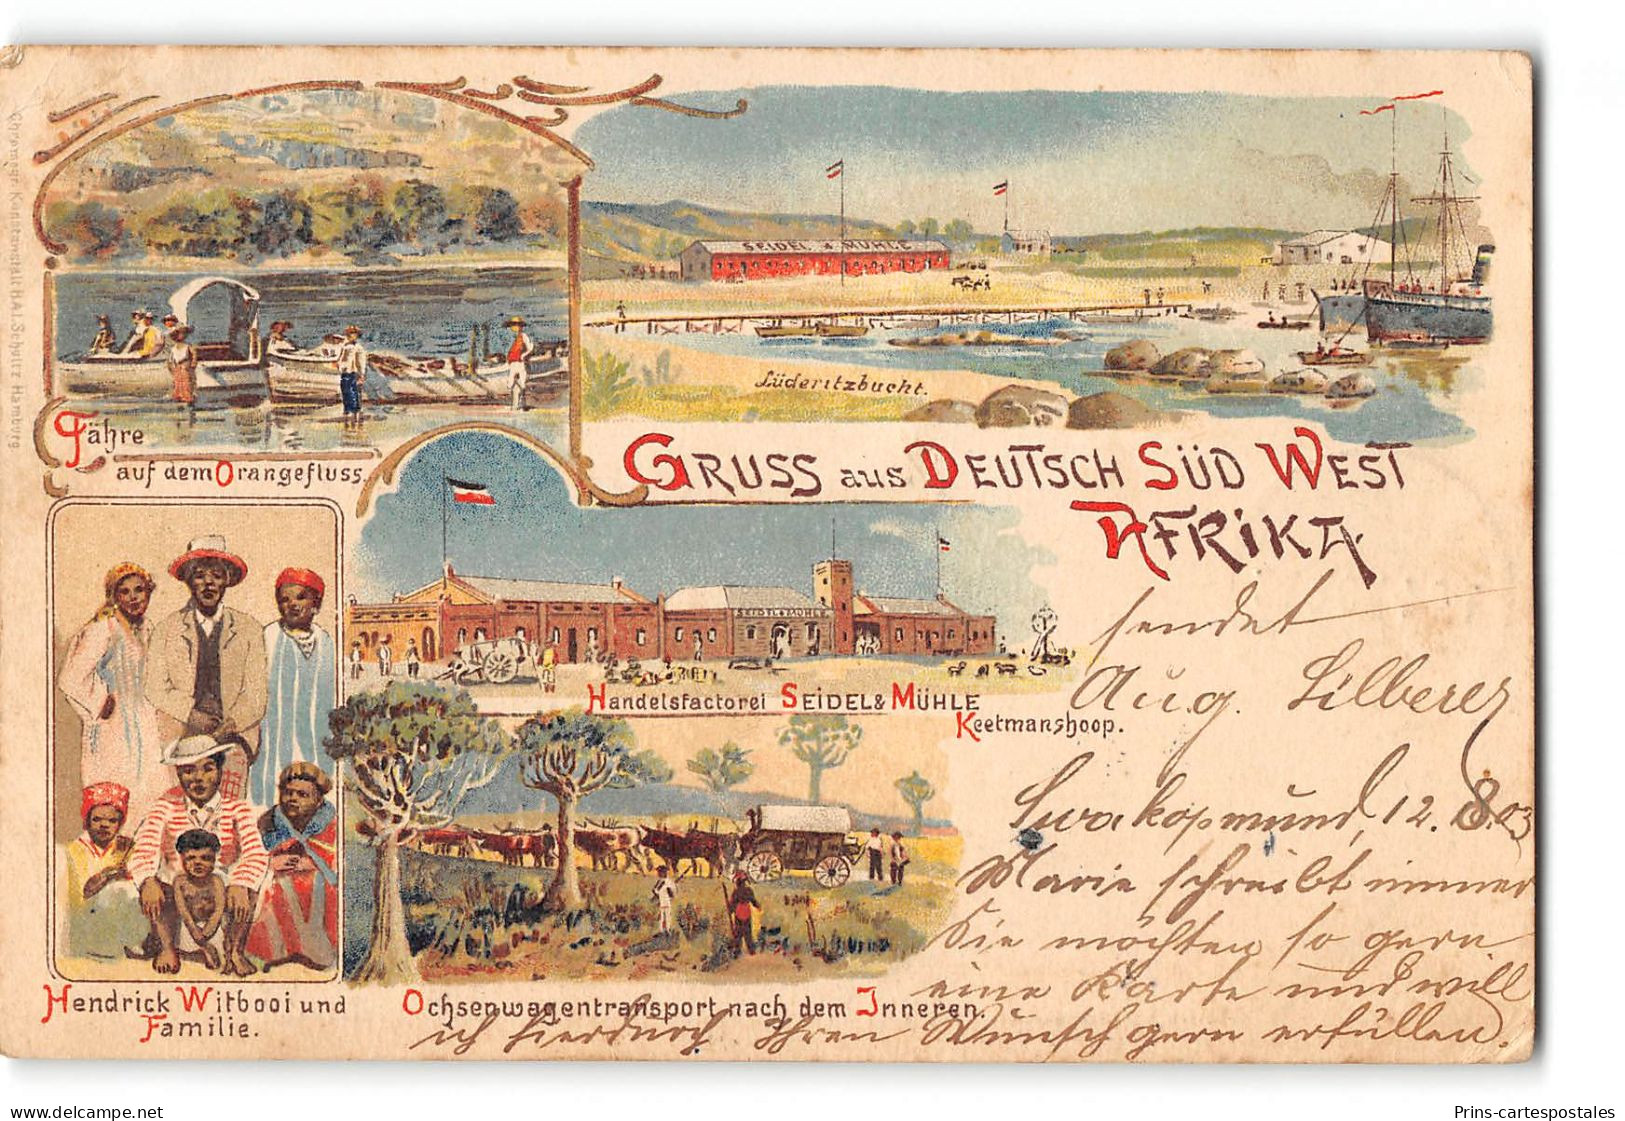 Chromogr. Kunstanstalt v. A. Schultz Hamburg
SEIDEL & MÜHLE
Lüderitzbucht.
Fähre
auf dem Orangefluss.
GRUSS aus DEUTSCH SÜD WEST
AFRIKA.
SEIDEL & MÜHLE
Handelsfactorei SEIDEL & MÜHLE
Keetmanshoop.
Hendrick Witbooi und
Familie.
Ochsenwagentransport nach dem Inneren.
sendet
Aug. Silberer
Swakopmund, 12. 8. 03
Marie schreibt immer
Sie möchten so gern
eine Karte und will
ich hierdurch Ihren Wunsch gern erfüllen.
delcampe.net
Prins-cartespostales